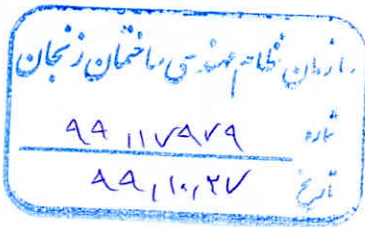 سازمان نظام مهندسی ساختمان زنجان
شماره ۹۹,۱۱۷۹۷۹
تاریخ ۹۹,۱۰,۲۷